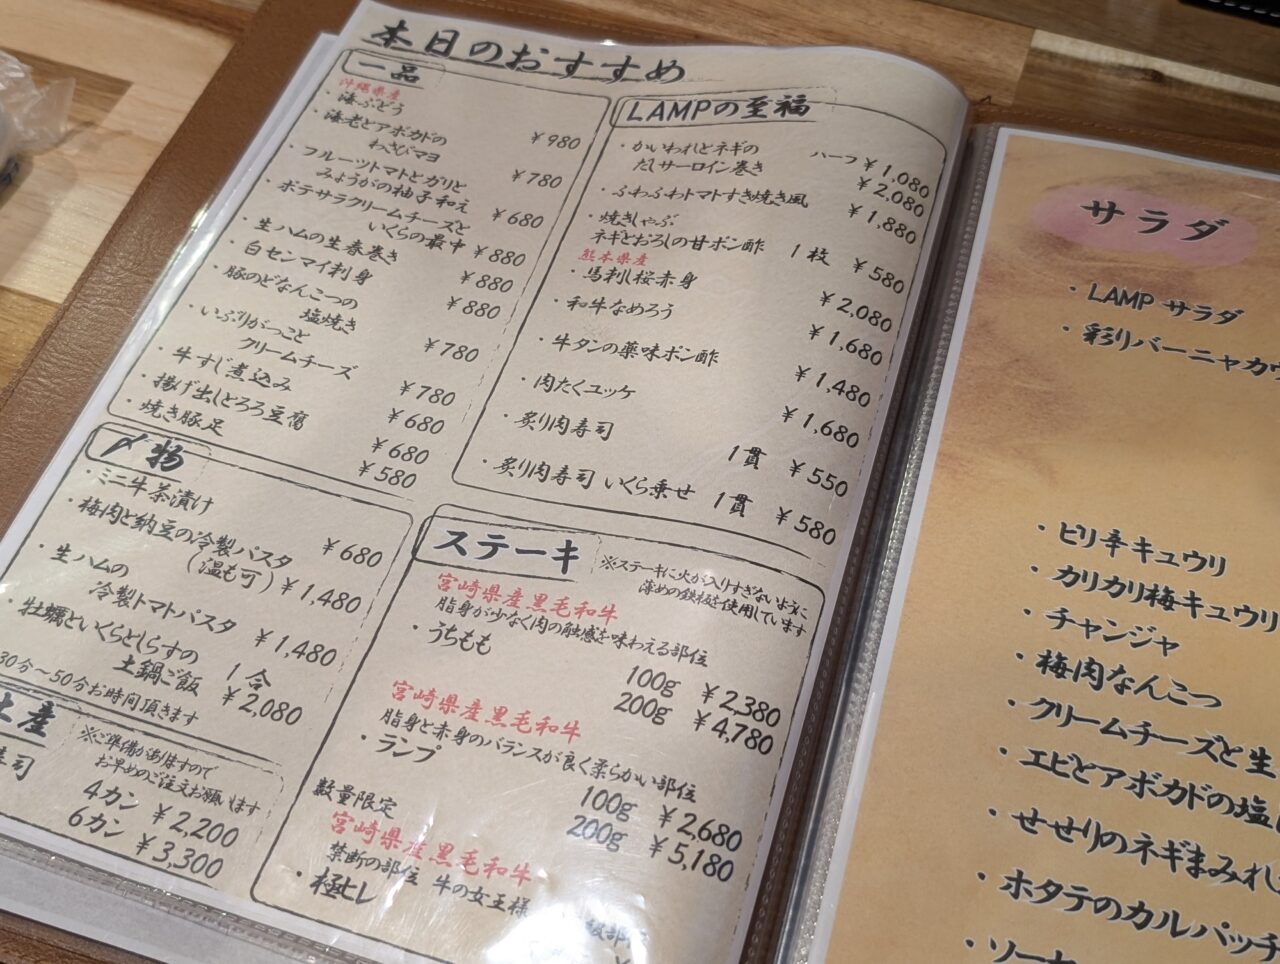 本日のおすすめ
一品
沖縄県産
・海ぶどう ¥980
・海老とアボカドの
わさびマヨ ¥780
・フルーツトマトとガリと
みょうがの柚子和え ¥680
・ポテサラクリームチーズと
いくらの最中 ¥880
・生ハムの生春巻き ¥880
・白センマイ刺身 ¥880
・豚のどなんこつの
塩焼き ¥780
・いぶりがっこと
クリームチーズ ¥780
・牛すじ煮込み ¥680
・揚げ出しとろろ豆腐 ¥680
・焼き豚足 ¥580
〆物
・ミニ牛茶漬け ¥680
・梅肉と納豆の冷製パスタ
(温も可) ¥1,480
・生ハムの
冷製トマトパスタ ¥1,480
・牡蠣といくらとしらすの
土鍋ご飯 1合 ¥2,080
30分〜50分お時間頂きます
土産
※ご準備がありますので
お早めのご注文お願いします
寿司
4カン ¥2,200
6カン ¥3,300
LAMPの至福
・かいわれとネギの
だしサーロイン巻き ハーフ ¥1,080
¥2,080
・ふわふわトマトすき焼き風 ¥1,880
・焼きしゃぶ
ネギとおろしの甘ポン酢 1枚 ¥580
熊本県産
・馬刺し桜赤身 ¥2,080
・和牛なめろう ¥1,680
・牛タンの薬味ポン酢 ¥1,480
・肉たくユッケ ¥1,680
・炙り肉寿司 1貫 ¥550
・炙り肉寿司 いくら乗せ 1貫 ¥580
ステーキ
※ステーキに火が入りすぎないように
薄めの鉄板を使用しています
宮崎県産黒毛和牛
脂身が少なく肉の触感を味わえる部位
・うちもも
100g ¥2,380
200g ¥4,780
宮崎県産黒毛和牛
脂身と赤身のバランスが良く柔らかい部位
・ランプ
100g ¥2,680
200g ¥5,180
数量限定
宮崎県産黒毛和牛
禁断の部位 牛の女王様
・極ヒレ
サラダ
・LAMP サラダ
・彩りバーニャカウ
・ピリ辛キュウリ
・カリカリ梅キュウリ
・チャンジャ
・梅肉なんこつ
・クリームチーズと生
・エビとアボカドの塩
・せせりのネギまみれ
・ホタテのカルパッチ
・ソーセ